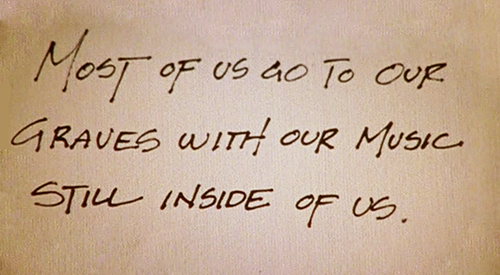 MOST OF US GO TO OUR
GRAVES WITH OUR MUSIC
STILL INSIDE OF US.